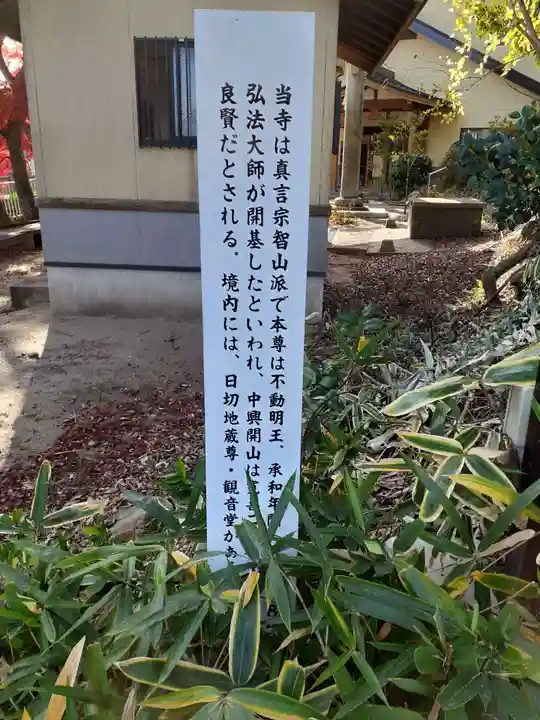 当寺は真言宗智山派で本尊は不動明王、承和年
弘法大師が開基したといわれ、中興開山は
良賢だとされる。境内には、日切地蔵尊・観音堂があ